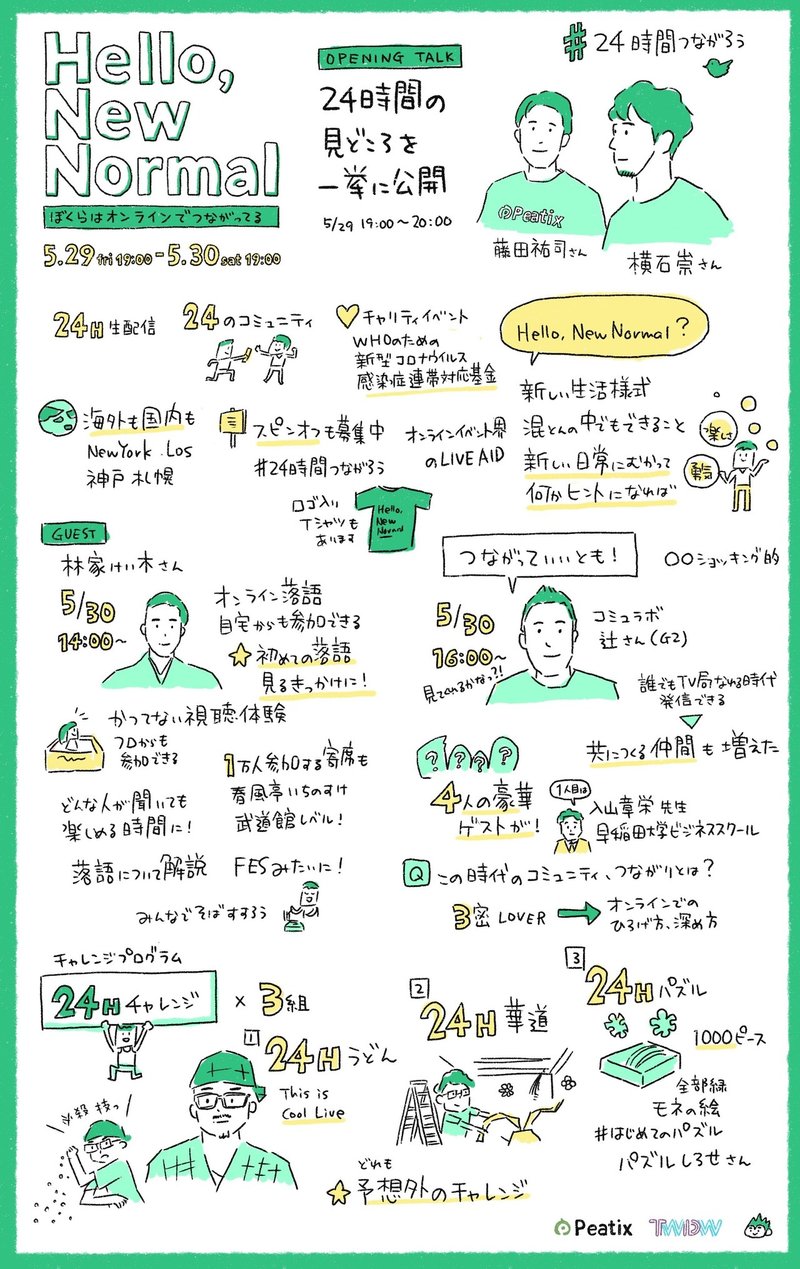 Hello,
New
Normal
ぼくらはオンラインでつながってる
5.29 fri 19:00 - 5.30 sat 19:00
OPENING TALK
24時間の
見どころを
一挙に公開
5/29 19:00〜20:00
#24時間つながろう
Peatix
藤田祐司さん
横石崇さん
24H生配信
24のコミュニティ
チャリティイベント
WHOのための
新型コロナウイルス
感染症連帯対応基金
Hello, New Normal?
新しい生活様式
混とんの中でもできること
新しい日常にむかって
何かヒントになれば
楽しさ
勇気
海外も国内も
NewYork .Los
神戸 札幌
スピンオフも募集中
#24時間つながろう
オンラインイベント界
のLIVE AID
ロゴ入り
Tシャツも
あります
Hello,
New
Normal
GUEST
林家けい木さん
5/30
14:00~
オンライン落語
自宅からも参加できる
初めての落語
見るきっかけに!
かつてない視聴体験
フロからも
参加できる
1万人参加する寄席も
春風亭いちのすけ
武道館レベル!
どんな人が聞いても
楽しめる時間に!
落語について解説
FESみたいに!
みんなでそばすすろう
つながっていいとも!
〇〇ショッキング的
5/30
16:00~
見てくれるかなっ?!
コミュラボ
辻さん(G2)
誰でもTV局になれる時代
発信できる
共につくる仲間も増えた
? ? ? ?
4人の豪華
ゲストが!
1人目は
入山章栄 先生
早稲田大学ビジネススクール
Q この時代のコミュニティ、つながりとは?
3密 LOVER
オンラインでの
ひろげ方、深め方
チャレンジプログラム
24Hチャレンジ
×3組
1
24Hうどん
This is
Cool Live
必殺技っ
2
24H華道
3
24Hパズル
1000ピース
全部緑
モネの絵
#はじめてのパズル
パズルしろせさん
どれも
予想外のチャレンジ
Peatix
TWDW